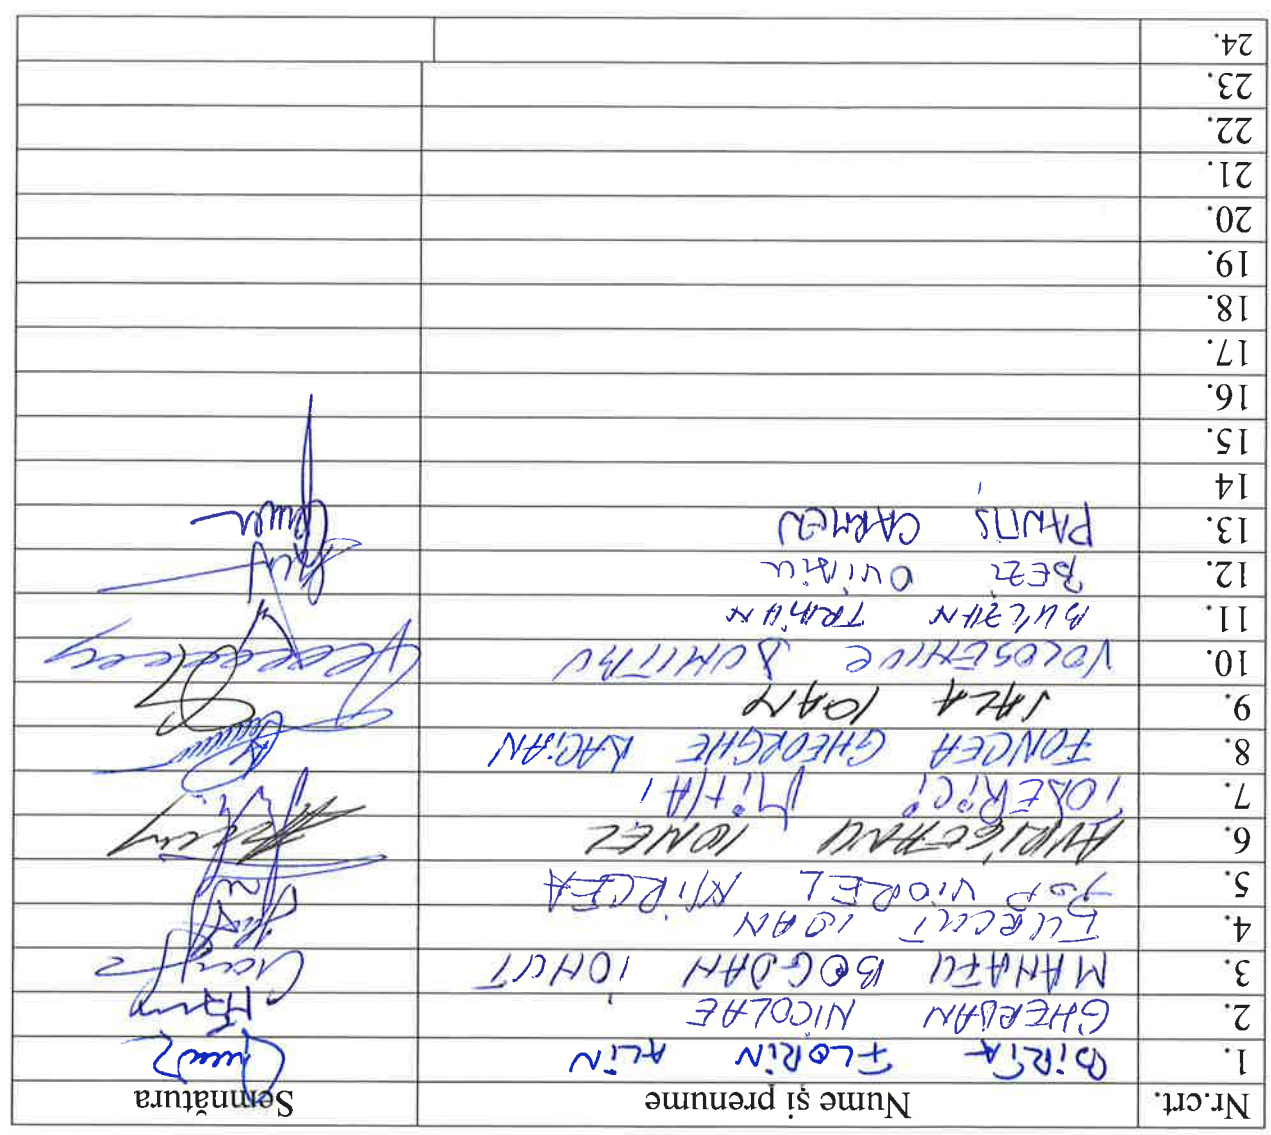 Nr.crt. Nume și prenume Semnătura
1. BIRTA FLORIN ALIN
2. GHERDAN NICOLAE
3. MANAFU BOGDAN IONUT
4. FURCUT IOAN
5. POP VIOREL MIRCEA
6. AVRIGEANU IONEL
7. TODERICI MIHAI
8. FONCEA GHEORGHE DACIAN
9. SALA IOAN
10. VOLOSENIUC DUMITRU
11. BULZAN TRAIAN
12. BEZI OVIDIU
13. PANTIȘ CARMEN
14
15.
16.
17.
18.
19.
20.
21.
22.
23.
24.